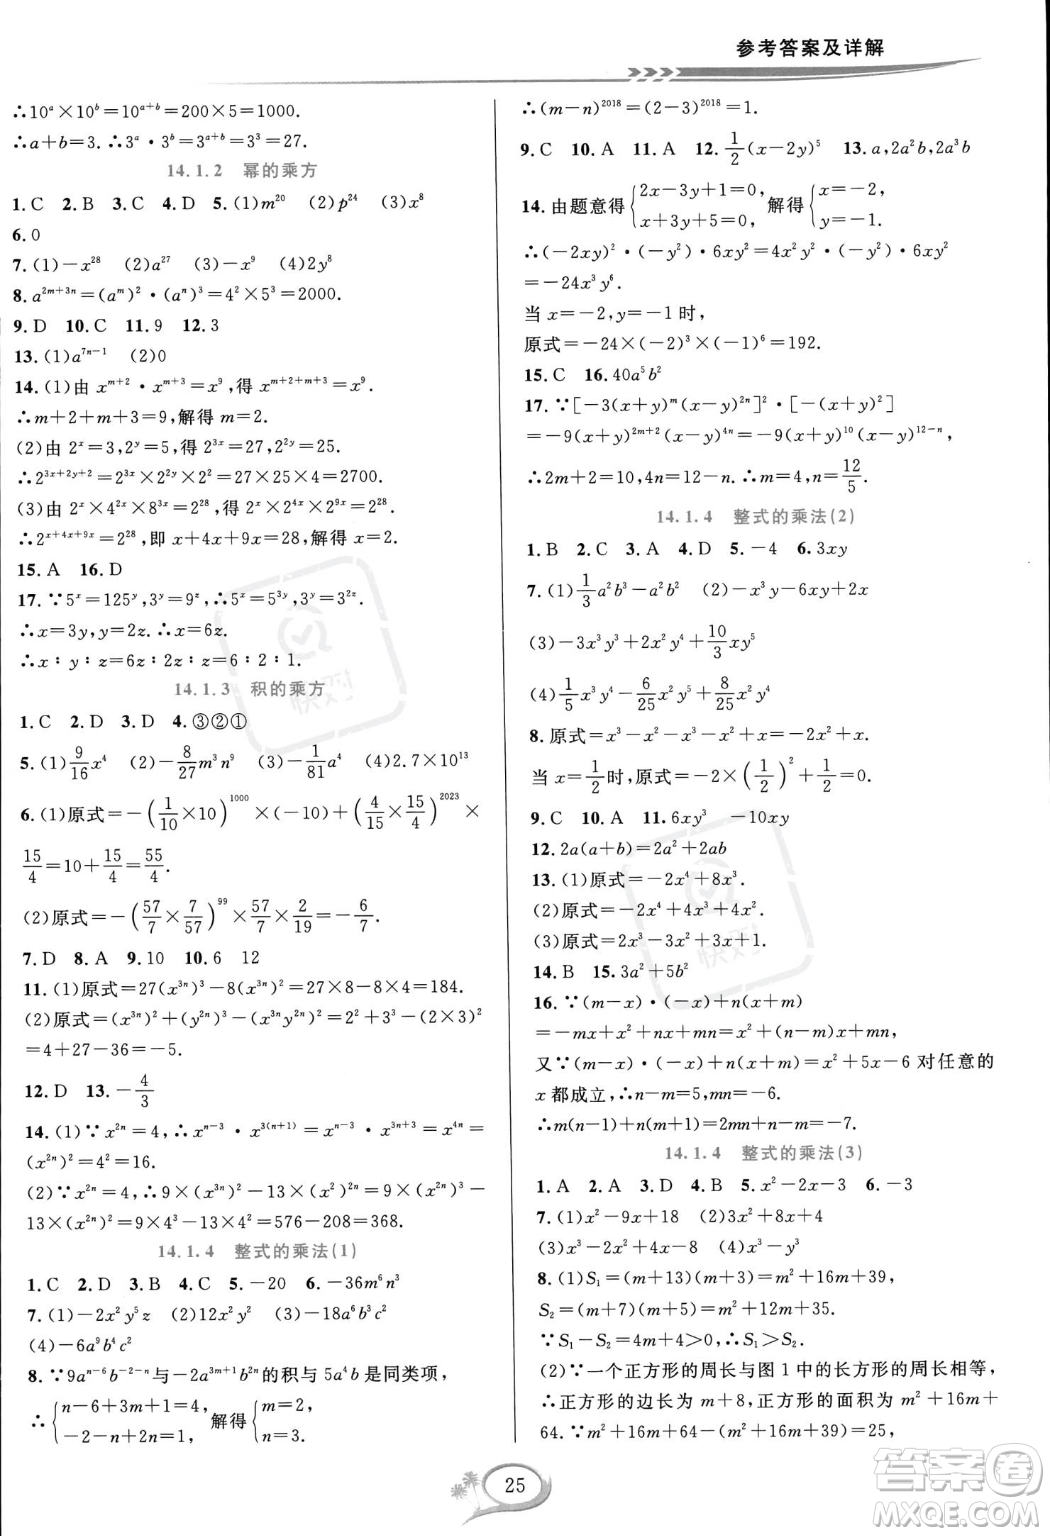 参考答案及详解
∴10^a×10^b=10^{a+b}=200×5=1000.
∴a+b=3. ∴3^a·3^b=3^{a+b}=3^3=27.
14.1.2 幂的乘方
1.C 2.B 3.C 4.D 5.(1)m^{20} (2)p^{24} (3)x^8
6.0
7.(1)-x^{28} (2)a^{27} (3)-x^9 (4)2y^8
8.a^{2m+3n}=(a^m)^2·(a^n)^3=4^2×5^3=2000.
9.D 10.C 11.9 12.3
13.(1)a^{7n-1} (2)0
14.(1)由 x^{m+2}·x^{m+3}=x^9,得 x^{m+2+m+3}=x^9.
∴m+2+m+3=9,解得 m=2.
(2)由 2^x=3,2^y=5,得 2^{3x}=27,2^{2y}=25.
∴2^{3x+2y+2}=2^{3x}×2^{2y}×2^2=27×25×4=2700.
(3)由 2^x×4^{2x}×8^{3x}=2^{28},得 2^x×2^{4x}×2^{9x}=2^{28}.
∴2^{x+4x+9x}=2^{28},即 x+4x+9x=28,解得 x=2.
15.A 16.D
17.∵5^x=125^y,3^y=9^z,∴5^x=5^{3y},3^y=3^{2z}.
∴x=3y,y=2z.∴x=6z.
∴x:y:z=6z:2z:z=6:2:1.
14.1.3 积的乘方
1.C 2.D 3.D 4.③②①
5.(1)9/16x^4 (2)-8/27m^3n^9 (3)-1/81a^4 (4)2.7×10^{13}
6.(1)原式=-(1/10×10)^{1000}×(-10)+(4/15×15/4)^{2023}×
15/4=10+15/4=55/4.
(2)原式=-(57/7×7/57)^{99}×57/7×2/19=-6/7.
7.D 8.A 9.10 10.6 12
11.(1)原式=27(x^{3n})^3-8(x^{3n})^2=27×8-8×4=184.
(2)原式=(x^{3n})^2+(y^{2n})^3-(x^{3n}y^{2n})^2=2^2+3^3-(2×3)^2
=4+27-36=-5.
12.D 13.-4/3
14.(1)∵x^{2n}=4,∴x^{n-3}·x^{3(n+1)}=x^{n-3}·x^{3n+3}=x^{4n}=
(x^{2n})^2=4^2=16.
(2)∵x^{2n}=4,∴9×(x^{3n})^2-13×(x^2)^{2n}=9×(x^{2n})^3-
13×(x^{2n})^2=9×4^3-13×4^2=576-208=368.
14.1.4 整式的乘法(1)
1.C 2.D 3.B 4.C 5.-20 6.-36m^6n^3
7.(1)-2x^2y^5z (2)12x^2y^2 (3)-18a^6b^3c^2
(4)-6a^9b^4c^2
8.∵9a^{n-6}b^{-2-n}与-2a^{3m+1}b^{2n}的积与 5a^4b 是同类项,
∴{n-6+3m+1=4, -2-n+2n=1, 解得{m=2, n=3.
∴(m-n)^{2018}=(2-3)^{2018}=1.
9.C 10.A 11.A 12.1/2(x-2y)^5 13.a,2a^2b,2a^3b
14.由题意得{2x-3y+1=0, x+3y+5=0, 解得{x=-2, y=-1.
∴(-2xy)^2·(-y^2)·6xy^2=4x^2y^2·(-y^2)·6xy^2
=-24x^3y^6.
当 x=-2,y=-1 时,
原式=-24×(-2)^3×(-1)^6=192.
15.C 16.40a^5b^2
17.∵[-3(x+y)^m(x-y)^{2n}]^2·[-(x+y)^2]
=-9(x+y)^{2m+2}(x-y)^{4n}=-9(x+y)^{10}(x-y)^{12-n},
∴2m+2=10,4n=12-n.∴m=4,n=12/5.
14.1.4 整式的乘法(2)
1.B 2.C 3.A 4.D 5.-4 6.3xy
7.(1)1/3a^2b^3-a^2b^2 (2)-x^3y-6xy+2x
(3)-3x^3y^3+2x^2y^4+10/3xy^5
(4)1/5x^3y-6/25x^2y^2+8/25x^2y^4
8.原式=x^3-x^2-x^3-x^2+x=-2x^2+x.
当 x=1/2时,原式=-2×(1/2)^2+1/2=0.
9.C 10.A 11.6xy^3 -10xy
12.2a(a+b)=2a^2+2ab
13.(1)原式=-2x^4+8x^3.
(2)原式=-2x^4+4x^3+4x^2.
(3)原式=2x^3-3x^2-x.
14.B 15.3a^2+5b^2
16.∵(m-x)·(-x)+n(x+m)
=-mx+x^2+nx+mn=x^2+(n-m)x+mn,
又∵(m-x)·(-x)+n(x+m)=x^2+5x-6 对任意的
x 都成立,∴n-m=5,mn=-6.
∴m(n-1)+n(m+1)=mn-m+mn+n=-7.
14.1.4 整式的乘法(3)
1.A 2.B 3.A 4.D 5.x^2-2x-2 6.-3
7.(1)x^2-9x+18 (2)-2x^2+8x+4
(3)x^3-5x^2-4x-8 (4)x^3-y^3
8.(1)S_1=(m+13)(m+3)=m^2+16m+39,
S_2=(m+7)(m+5)=m^2+12m+35.
∵S_1-S_2=4m+4>0,∴S_1>S_2.
(2)∵一个正方形的周长与图 1 中的长方形的周长相等,
∴正方形的边长为 m+8,正方形的面积为 m^2+16m+
64.∵m^2+16m+64-(m^2+16m+39)=25,
25
快对
快对
答案圈
MXQE.COM